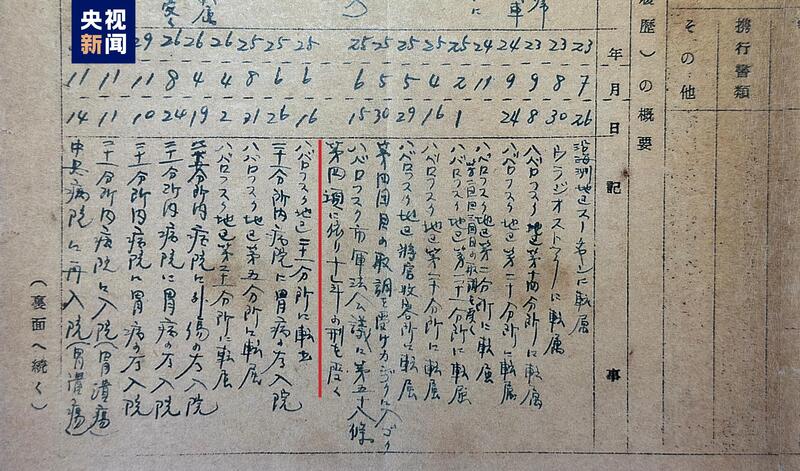 央视
新闻
携行書類
その他
履歴)の概要
年 月 日 記事
23 7 26 沿海州地区スーチャンに転属
23 8 30 ウラジオストアリーに転属
23 9 8 ハバロフスク地区第十四分所に転属
24 9 24 ハバロフスク地区第二十分所に転属
24 11 ハバロフスク地区第二分所に転属
回目の取調を受く
25 2 1 ハバロフスク地区第二十一分所に転属
25 4 16 ハバロフスク地区第二十分所に転属
25 5 29 ハバロフスク地区将官収容所に転属
25 5 30 第四回目の取調を受けカゴクに入ゴク
25 6 15 ハバロフスク市軍法会議に第五十八條
第四項に依り の刑を受く
25 6 16 ハバロフスク地区二十一分所に転出
25 6 26 二十一分所内病院に胃病の為入院
25 8 21 ハバロフスク地区第五分所に転属
26 4 2 ハバロフスク地区第二十一分所に転属
26 4 19 分所内病院に外傷の為入院
26 8 24 二十一分所内病院に胃病の為入院
29 11 10 二十一分所内病院に胃病の為入院
11 11 二十一分所内病院に入院(胃潰瘍)
11 14 中央病院に再入院(胃潰瘍)
(裏面へ続く)